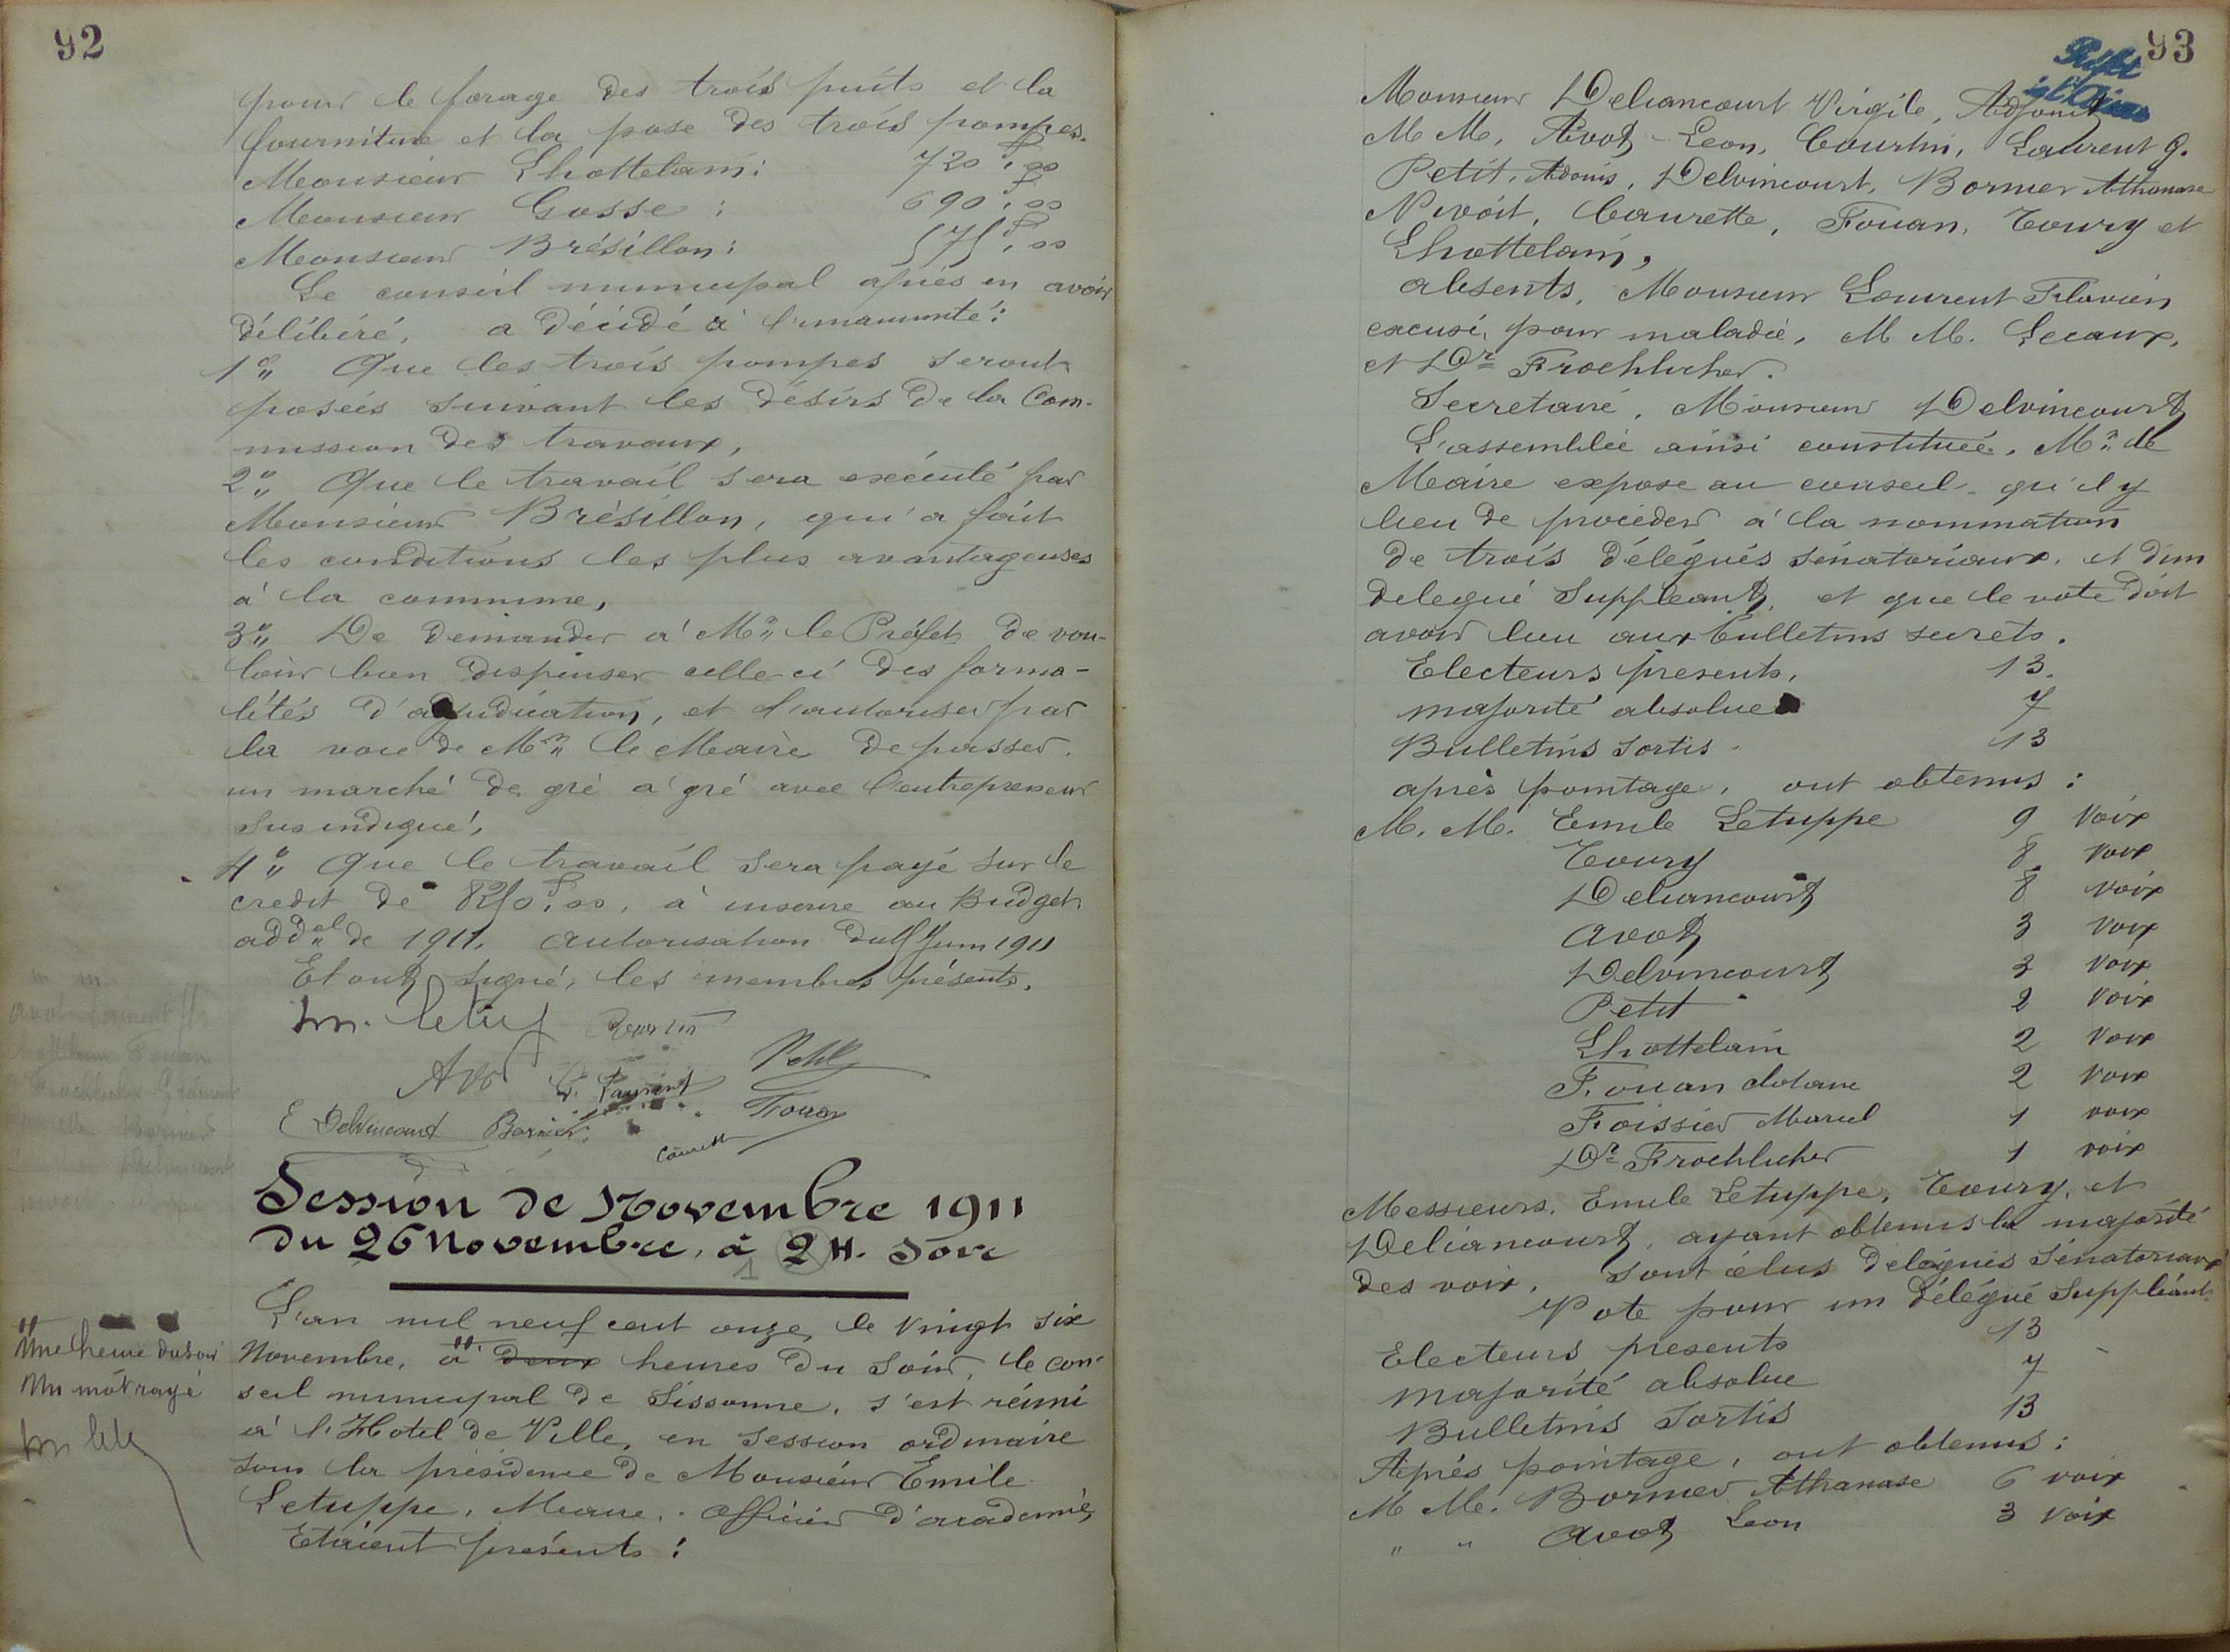 92
pour le forage des trois puits et la
fourniture et la pose des trois pompes.
Monsieur Lhottelain : 720f,00
Monsieur Gosse : 690f,00
Monsieur Brésillon : 575f,00
Le conseil municipal après en avoir
délibéré, a décidé à l'unanimité :
1° Que les trois pompes seront
posées suivant les désirs de la Com-
mission des travaux,
2° Que le travail sera exécuté par
Monsieur Brésillon, qui a fait
les conditions les plus avantageuses
à la commune,
3° De demander à Mr le Préfet de vou-
loir bien dispenser celle ci des forma-
lités d'adjudication, et l'autoriser par
la voie de Mr le Maire de passer
un marché de gré à gré avec l'entrepreneur
sus indiqué,
4° Que le travail sera payé sur le
credit de f,00, à inscrire au Budget
addel de 1911. autorisation du Juin 1911
Et ont signé, les membres présents.
Avot G. Laurent Petit
E Delvincourt Bornier Fouan
Session de Novembre 1911
du 26 Novembre, à 2 H. Soir
1
Une heure du soir
Un mot rayé
L'an mil neuf cent onze, le vingt six
Novembre, à deux heures du soir, le con-
seil municipal de Sissonne, s'est réuni
à l'Hotel de Ville, en session ordinaire
sous la présidence de Monsieur Emile
Letuppe, Maire, officier d'académie,
Etaient présents :
93
Préfet
Monsieur Deliancourt Virgile, Adjoint
M M. Avot Leon, Courtin, Laurent G.
Petit, Adonis, Delvincourt, Bornier Athanase
Nivoit, Caurette, Fouan, Toury et
Lhottelain,
absents, Monsieur Laurent Flavien
excusé, pour maladie, M M. Lecaux,
et Dr Froehlicher.
Secretaire, Monsieur Delvincourt
L'assemblée ainsi constituée, Mr le
Maire expose au conseil qu'il y
lieu de procéder à la nomination
de trois délégués sénatoriaux, et d'un
delegué Suppleant, et que le vote doit
avoir lieu aux Bulletins secrets.
Electeurs presents, 13.
majorité absolue 7
Bulletins sortis 13
après pointage, ont obtenus :
M. M. Emile Letuppe 9 Voix
Toury 8 voix
Deliancourt 8 voix
Avot 3 voix
Delvincourt 3 voix
Petit 2 voix
Lhottelain 2 voix
Fouan 2 voix
Foissier Marcel 1 voix
Dr Froehlicher 1 voix
Messieurs. Emile Letuppe, Toury, et
Deliancourt, ayant obtenus la majorité
des voix, sont élus délégués Sénatoriaux
Vote pour un délégué suppléant
Electeurs presents 13
majorité absolue 7
Bulletins Sortis 13
Après pointage, ont obtenus :
M M. Bornier Athanase 6 voix
" " Avot Leon 3 voix